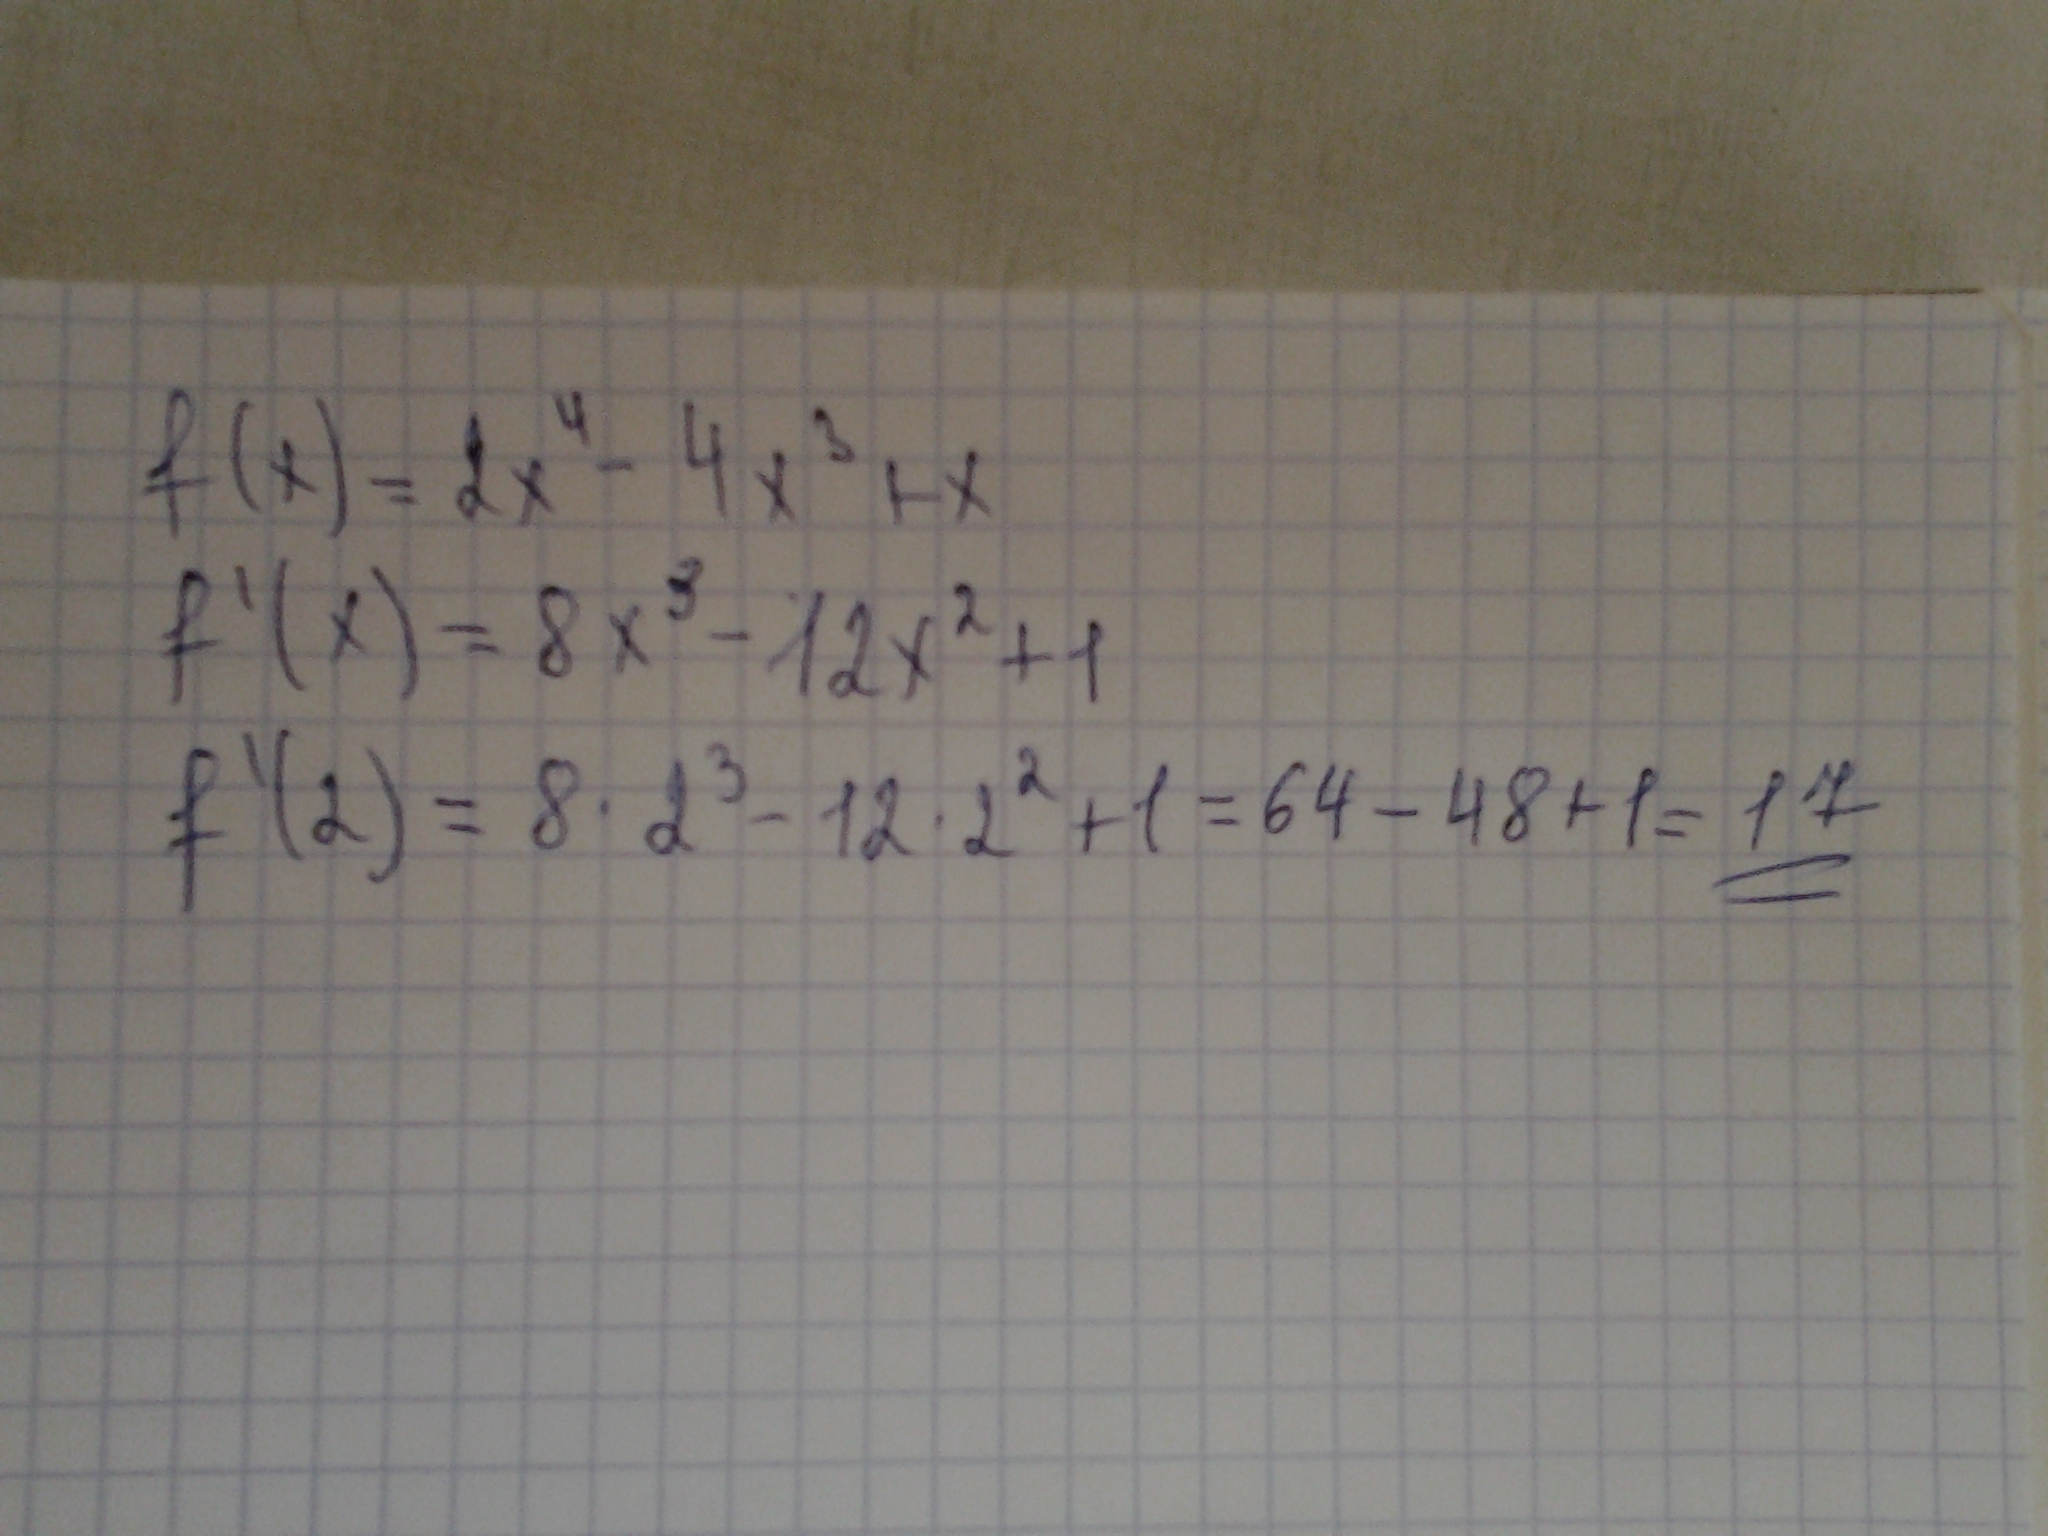 f(x) = 2x⁴ - 4x³ + x
f'(x) = 8x³ - 12x² + 1
f'(2) = 8 · 2³ - 12 · 2² + 1 = 64 - 48 + 1 = 17